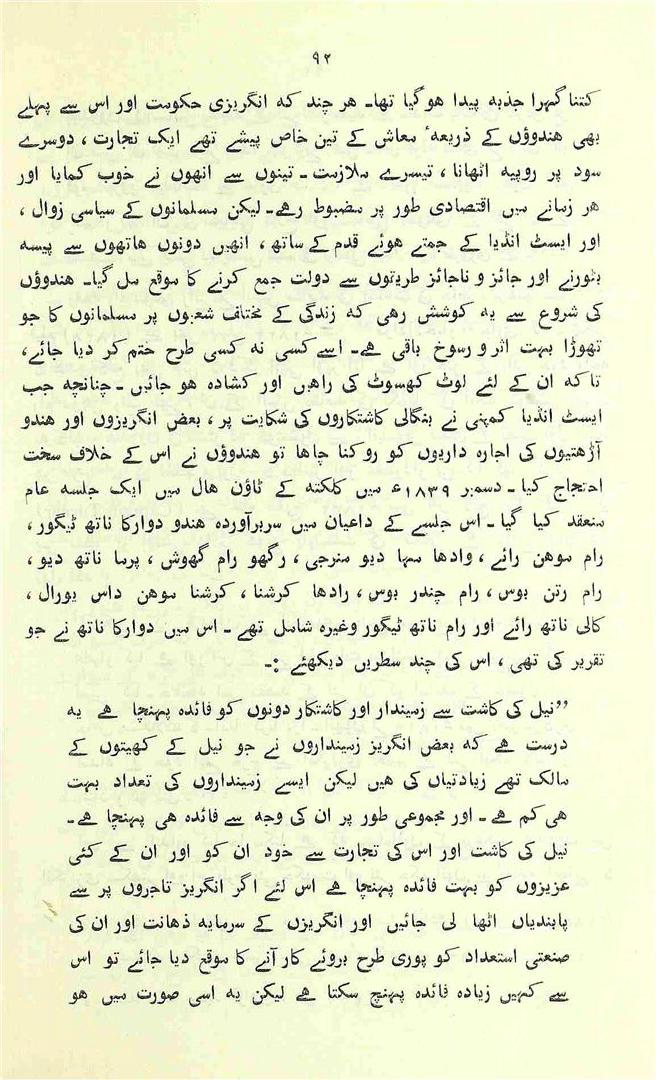 ۹۲
کتنا گہرا جذبہ پیدا ہوگیا تھا۔ ہر چند کہ انگریزی حکومت اور اس سے پہلے
بھی ہندوؤں کے ذریعۂ معاش کے تین خاص پیشے تھے ایک تجارت ، دوسرے
سود پر روپیہ اٹھانا ، تیسرے ملازمت ۔ تینوں سے انھوں نے خوب کمایا اور
ہر زمانے میں اقتصادی طور پر مضبوط رہے۔ لیکن مسلمانوں کے سیاسی زوال ،
اور ایسٹ انڈیا کے جمتے ہوئے قدم کے ساتھ ، انھیں دونوں ہاتھوں سے پیسہ
بٹورنے اور جائز و ناجائز طریقوں سے دولت جمع کرنے کا موقع مل گیا۔ ہندوؤں
کی شروع سے یہ کوشش رہی کہ زندگی کے مختلف شعبوں پر مسلمانوں کا جو
تھوڑا بہت اثر و رسوخ باقی ہے۔ اسے کسی نہ کسی طرح ختم کر دیا جائے،
تاکہ ان کے لئے لوٹ کھسوٹ کی راہیں اور کشادہ ہو جائیں ۔ چنانچہ جب
ایسٹ انڈیا کمپنی نے بنگالی کاشتکاروں کی شکایت پر ، بعض انگریزوں اور ہندو
آڑھتیوں کی اجارہ داریوں کو روکنا چاہا تو ہندوؤں نے اس کے خلاف سخت
احتجاج کیا ۔ دسمبر ۱۸۳۹ء میں کلکتہ کے ٹاؤن ہال میں ایک جلسہ عام
منعقد کیا گیا۔ اس جلسے کے داعیان میں سربرآوردہ ہندو دوارکا ناتھ ٹیگور ،
رام موہن رائے ، وادھا مہا دیو منرجی ، رگھو رام گھوش ، پرما ناتھ دیو ،
رام رتن بوس ، رام چندر بوس ، رادھا کرشنا ، کرشنا موہن داس یورال ،
کالی ناتھ رائے اور رام ناتھ ٹیگور وغیرہ شامل تھے ۔ اس میں دوارکا ناتھ نے جو
تقریر کی تھی ، اس کی چند سطریں دیکھئے :۔
”نیل کی کاشت سے زمیندار اور کاشتکار دونوں کو فائدہ پہنچا ہے یہ
درست ہے کہ بعض انگریز زمینداروں نے جو نیل کے کھیتوں کے
مالک تھے زیادتیاں کی ہیں لیکن ایسے زمینداروں کی تعداد بہت
ہی کم ہے ۔ اور مجموعی طور پر ان کی وجہ سے فائدہ ہی پہنچا ہے۔
نیل کی کاشت اور اس کی تجارت سے خود ان کو اور ان کے کئی
عزیزوں کو بہت فائدہ پہنچا ہے اس لئے اگر انگریز تاجروں پر سے
پابندیاں اٹھا لی جائیں اور انگریزں کے سرمایہ ذہانت اور ان کی
صنعتی استعداد کو پوری طرح بروئے کار آنے کا موقع دیا جائے تو اس
سے کہیں زیادہ فائدہ پہنچ سکتا ہے لیکن یہ اسی صورت میں ہو